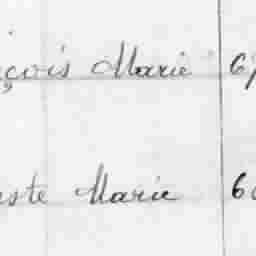 çois Marie 6
este Marie 6